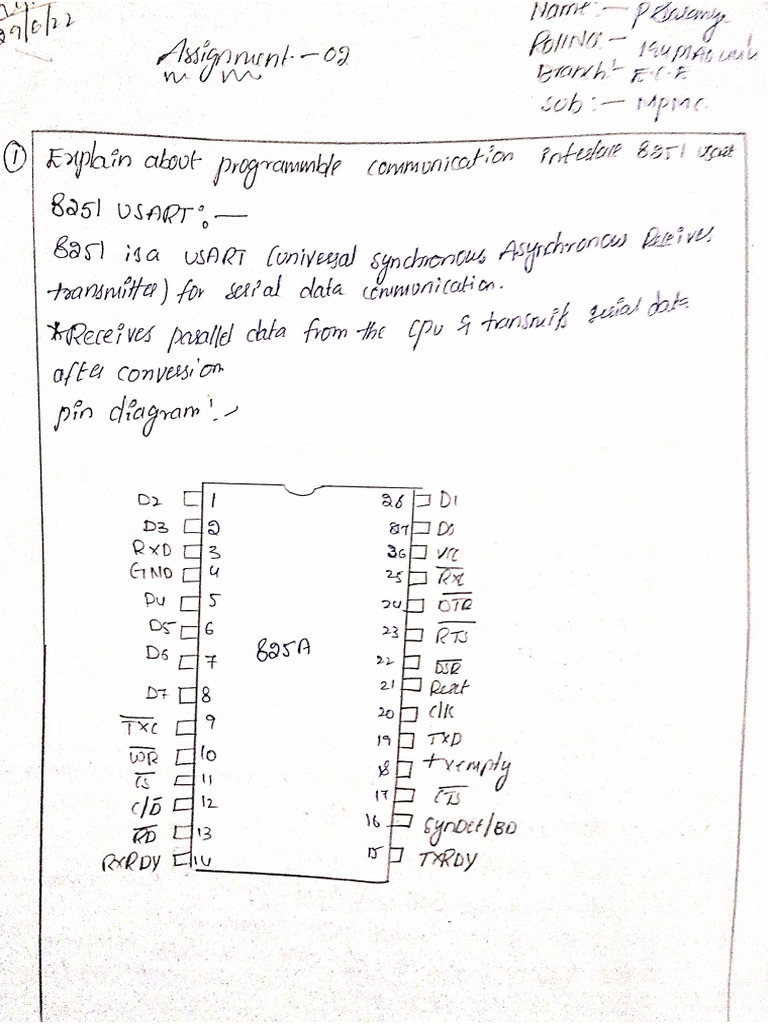 29/6/22
Assignment - 02
Name :-
Roll No. -
Branch:- E.C.E
Sub :- MPMC.
① Explain about programmble communication interface 8251 usart
8251 USART :-
8251 is a USART (universal synchronous Asynchronous Receives
transmitter) for serial data communication.
*Receives parallel data from the CPU & transmits serial data
after conversion
pin diagram :-
D2 1 28 D1
D3 2 27 D0
RXD 3 36 VCC
GND 4 25 RXC
D4 5 24 DTR
D5 6 23 RTS
D6 7 22 DSR
D7 8 21 Reset
825A
TXC 9 20 CLK
WR 10 19 TXD
CS 11 18 txempty
C/D 12 17 CTS
RD 13 16 SynDet/BD
RXRDY 14 15 TXRDY